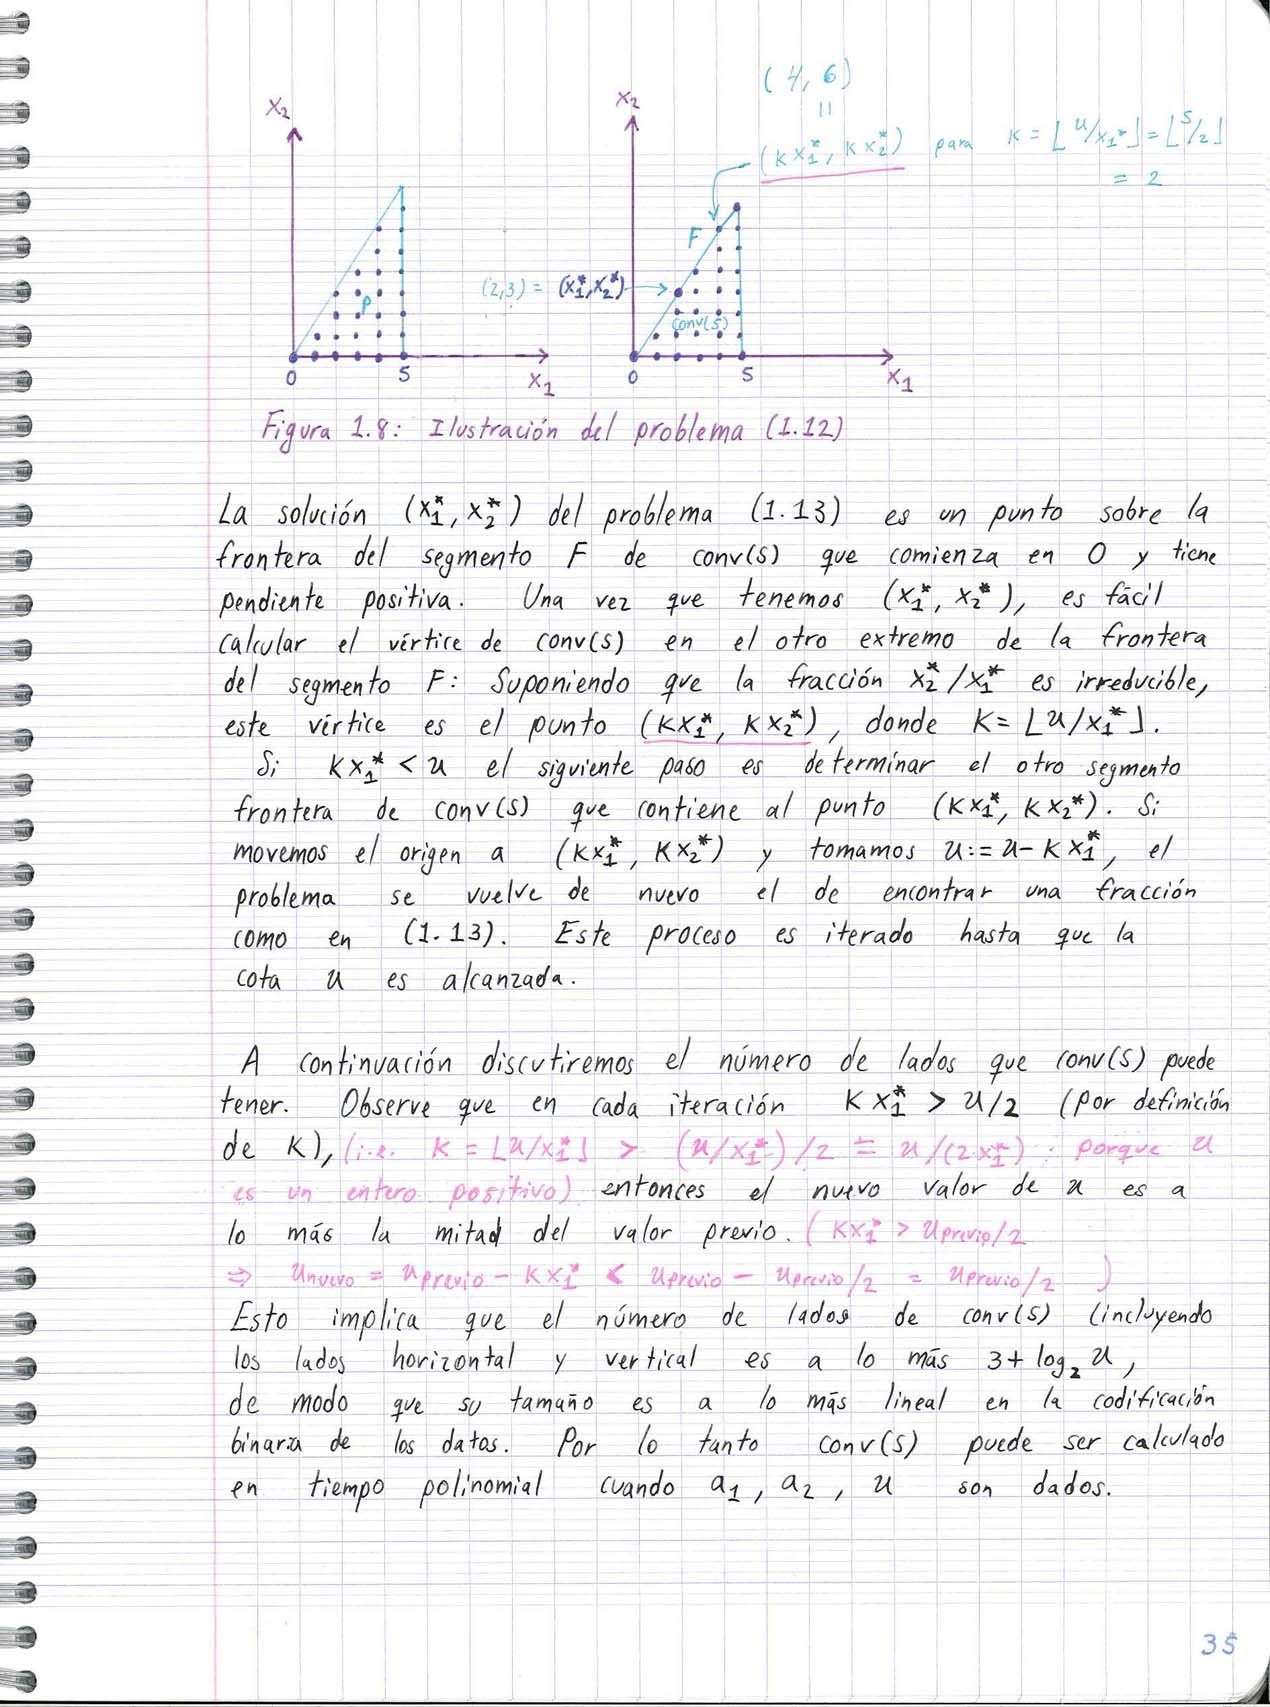 (4, 6)
||
(Kx₁*, Kx₂*) para K = ⌊u/x₁*⌋ = ⌊5/2⌋
= 2
x₂
x₂
F
P
(2,3) = (x₁*, x₂*)
conv(S)
0 5 x₁
0 5 x₁
Figura 1.8: Ilustración del problema (1.12)
La solución (x₁*, x₂*) del problema (1.13) es un punto sobre la
frontera del segmento F de conv(S) que comienza en 0 y tiene
pendiente positiva. Una vez que tenemos (x₁*, x₂*), es fácil
calcular el vértice de conv(S) en el otro extremo de la frontera
del segmento F: Suponiendo que la fracción x₂*/x₁* es irreducible,
este vértice es el punto (Kx₁*, Kx₂*), donde K = ⌊u/x₁*⌋.
Si Kx₁* < u el siguiente paso es determinar el otro segmento
frontera de conv(S) que contiene al punto (Kx₁*, Kx₂*). Si
movemos el origen a (Kx₁*, Kx₂*) y tomamos u := u - Kx₁*, el
problema se vuelve de nuevo el de encontrar una fracción
como en (1.13). Este proceso es iterado hasta que la
cota u es alcanzada.
A continuación discutiremos el número de lados que conv(S) puede
tener. Observe que en cada iteración Kx₁* > u/2 (por definición
de K), (i.e. K = ⌊u/x₁*⌋ > (u/x₁*)/2 = u/(2x₁*) : porque u
es un entero positivo) entonces el nuevo valor de u es a
lo más la mitad del valor previo. (Kx₁* > uprevio/2
⇒ unuevo = uprevio - Kx₁* < uprevio - uprevio/2 = uprevio/2 )
Esto implica que el número de lados de conv(S) (incluyendo
los lados horizontal y vertical es a lo más 3 + log₂ u,
de modo que su tamaño es a lo más lineal en la codificación
binaria de los datos. Por lo tanto conv(S) puede ser calculado
en tiempo polinomial cuando a₁, a₂, u son dados.
35